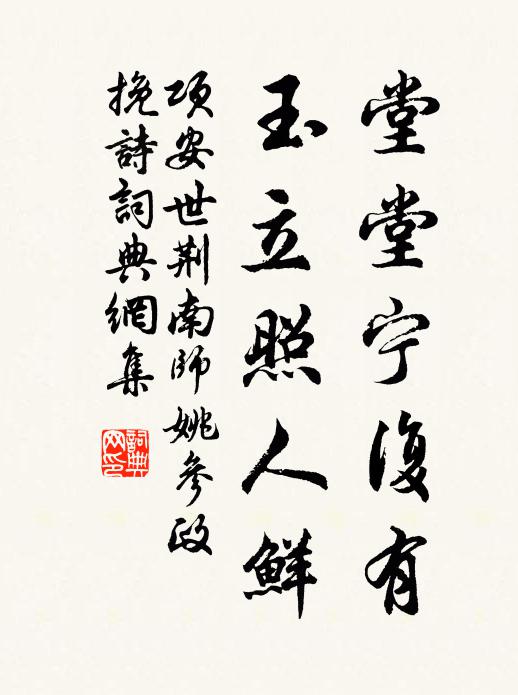 堂堂宁復有
玉立照人鮮
項安世荆南師姚參政
挽詩詞典網集
詞典网印